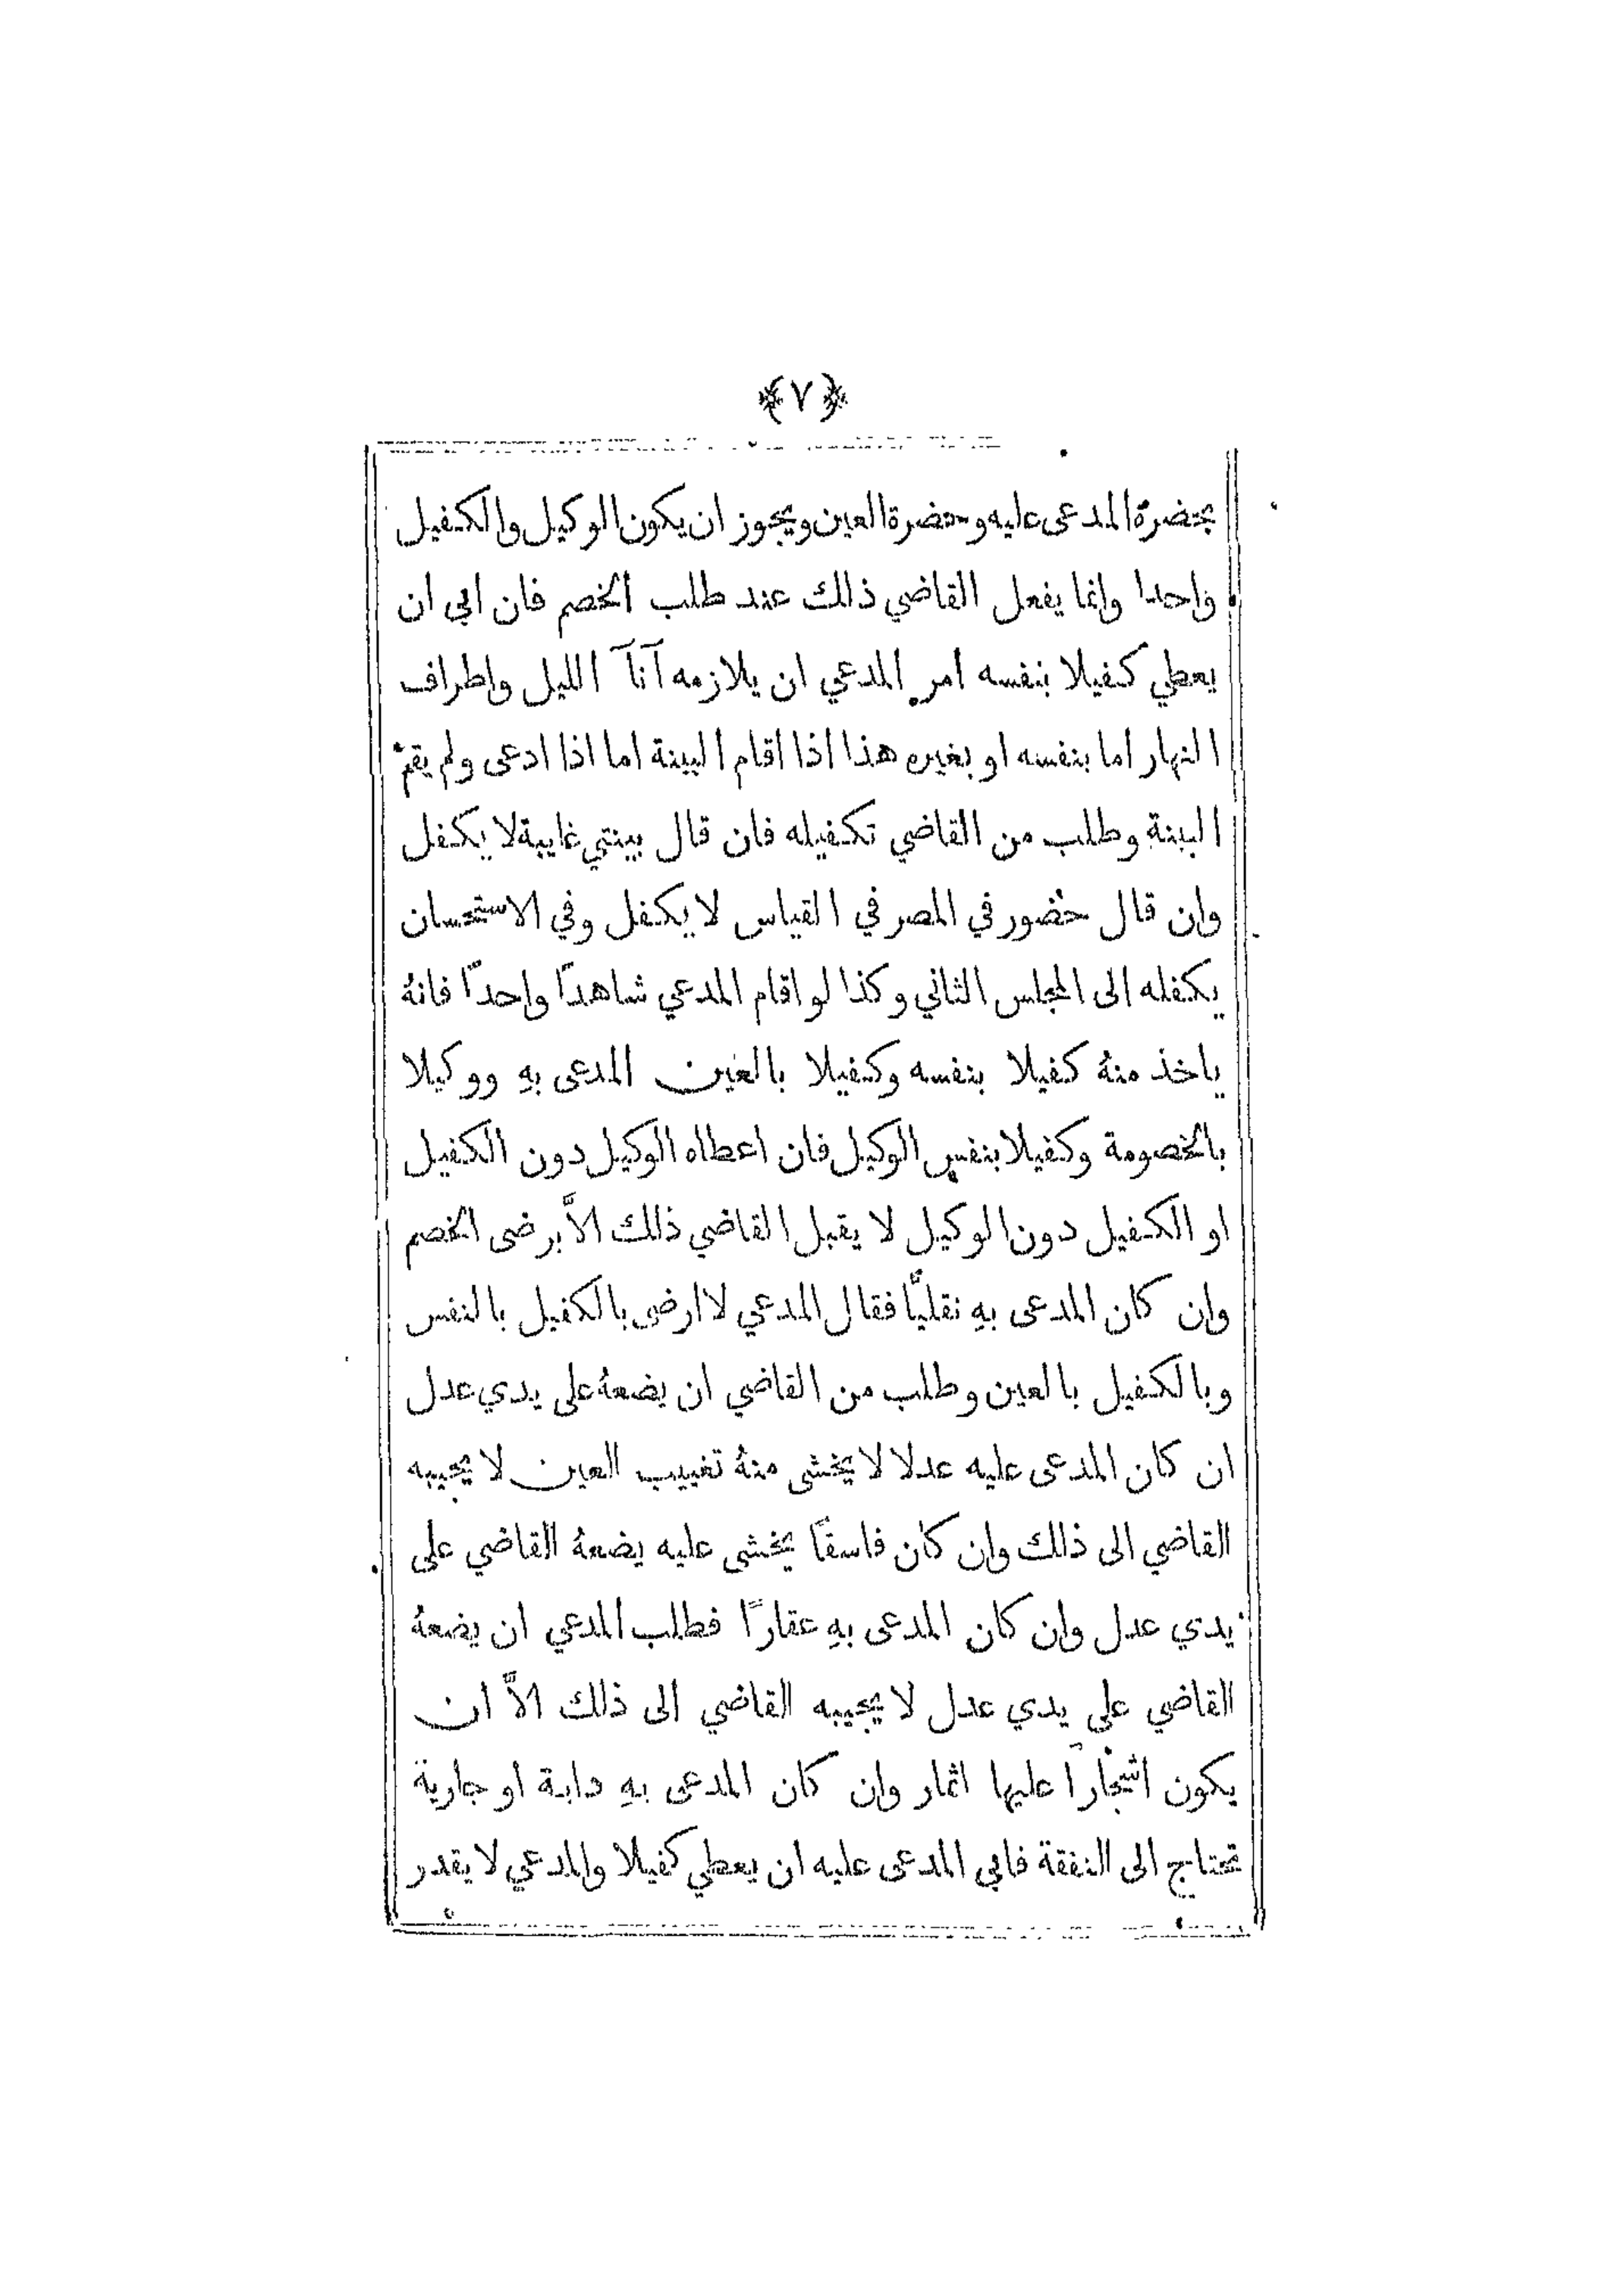 ﴿٧﴾
بحضرة المدعى عليه وحضرة العين ويجوز ان يكون الوكيل والكفيل
واحدا وانما يفعل القاضي ذلك عند طلب الخصم فان ابى ان
يعطي كفيلا بنفسه امر المدعي ان يلازمه آنآ الليل واطراف
النهار اما بنفسه او بغيره هذا اذا اقام البينة اما اذا ادعى ولم يقم
البينة وطلب من القاضي تكفيله فان قال بينتي غايبة لا يكفل
وان قال حضور في المصر في القياس لا يكفل وفي الاستحسان
يكفله الى المجلس الثاني وكذا لو اقام المدعي شاهداً واحداً فانهُ
ياخذ منهُ كفيلا بنفسه وكفيلا بالعين المدعى بهِ ووكيلا
بالخصومة وكفيلا بنفس الوكيل فان اعطاه الوكيل دون الكفيل
او الكفيل دون الوكيل لا يقبل القاضي ذلك الاَّ برضى الخصم
وان كان المدعى بهِ نقليًّا فقال المدعي لا ارضى بالكفيل بالنفس
وبالكفيل بالعين وطلب من القاضي ان يضعهُ على يدي عدل
ان كان المدعى عليه عدلا لا يخشى منهُ تغييب العين لا يجيبه
القاضي الى ذلك وان كان فاسقاً يخشى عليه يضعهُ القاضي على
يدي عدل وان كان المدعى بهِ عقاراً فطلب المدعي ان يضعهُ
القاضي على يدي عدل لا يجيبه القاضي الى ذلك الاَّ ان
يكون اشجاراً عليها اثمار وان كان المدعى بهِ دابة او جارية
تحتاج الى النفقة فابى المدعى عليه ان يعطي كفيلا والمدعي لا يقدر